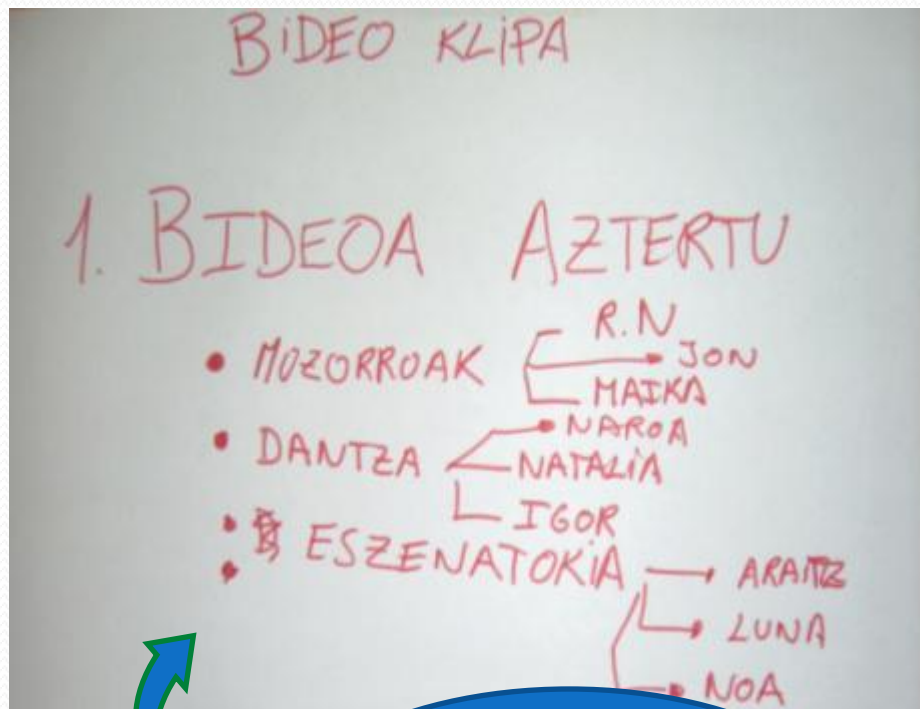 BIDEO KLIPA
1. BIDEOA AZTERTU
• MOZORROAK
R.N
JON
MAIKA
• DANTZA
NAROA
NATALIA
IGOR
• ESZENATOKIA
•
ARAITZ
LUNA
NOA